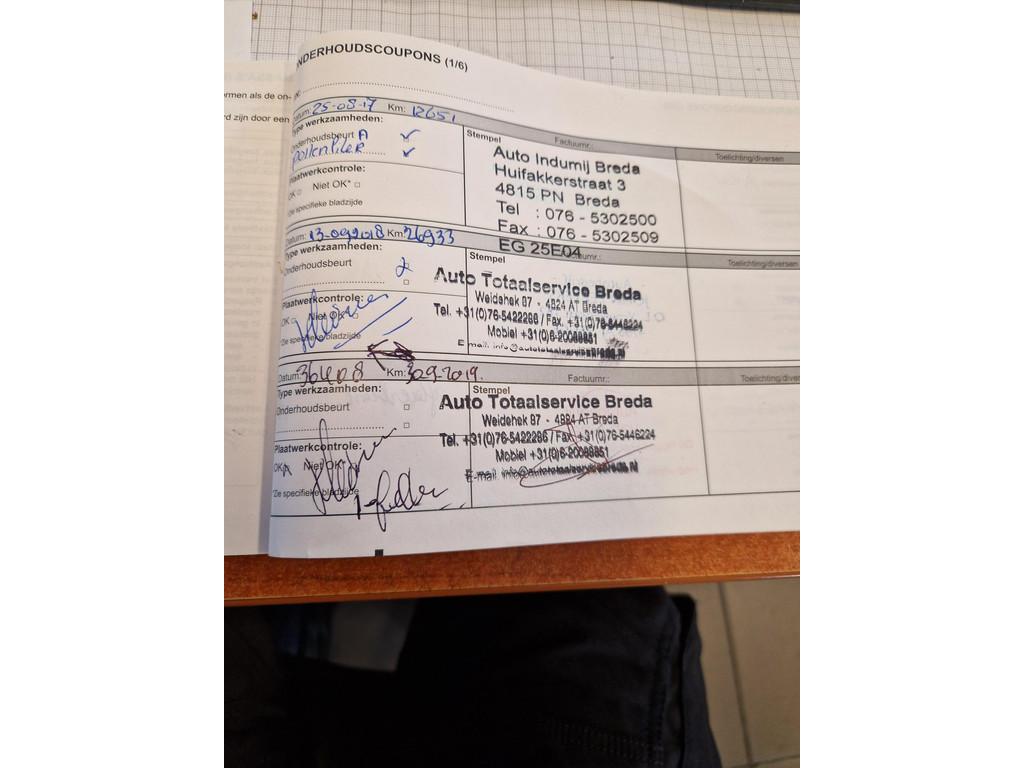 NDERHOUDSCOUPONS (1/6)
rmen als de on-
rd zijn door een
Datum: 25-08-17 Km: 12651
Type werkzaamheden:
Onderhoudsbeurt A
pollenfilter
Plaatwerkcontrole:
OK Niet OK*
*Zie specifieke bladzijde
Stempel Factuurnr.: Toelichting/diversen
Auto Indumij Breda
Huifakkerstraat 3
4815 PN Breda
Tel : 076 - 5302500
Fax : 076 - 5302509
EG 25E04
Datum: 13-09-2018 Km: 26933
Type werkzaamheden:
Onderhoudsbeurt
Plaatwerkcontrole:
OK Niet OK*
*Zie specifieke bladzijde
Stempel Toelichting/diversen
Auto Totaalservice Breda
Weidehek 87 - 4824 AT Breda
Tel. +31(0)76-5422286 / Fax. +31(0)76-5446224
Mobiel +31(0)6-20068851
E-mail: info@autototaalservicebreda.nl
Datum: 36408 Km: 30.9.2019.
Type werkzaamheden:
Onderhoudsbeurt
Plaatwerkcontrole:
OK Niet OK*
*Zie specifieke bladzijde
Stempel Factuurnr.: Toelichting/diversen
Auto Totaalservice Breda
Weidehek 87 - 4824 AT Breda
Tel. +31(0)76-5422286 / Fax. +31(0)76-5446224
Mobiel +31(0)6-20068851
E-mail: info@autototaalservicebreda.nl